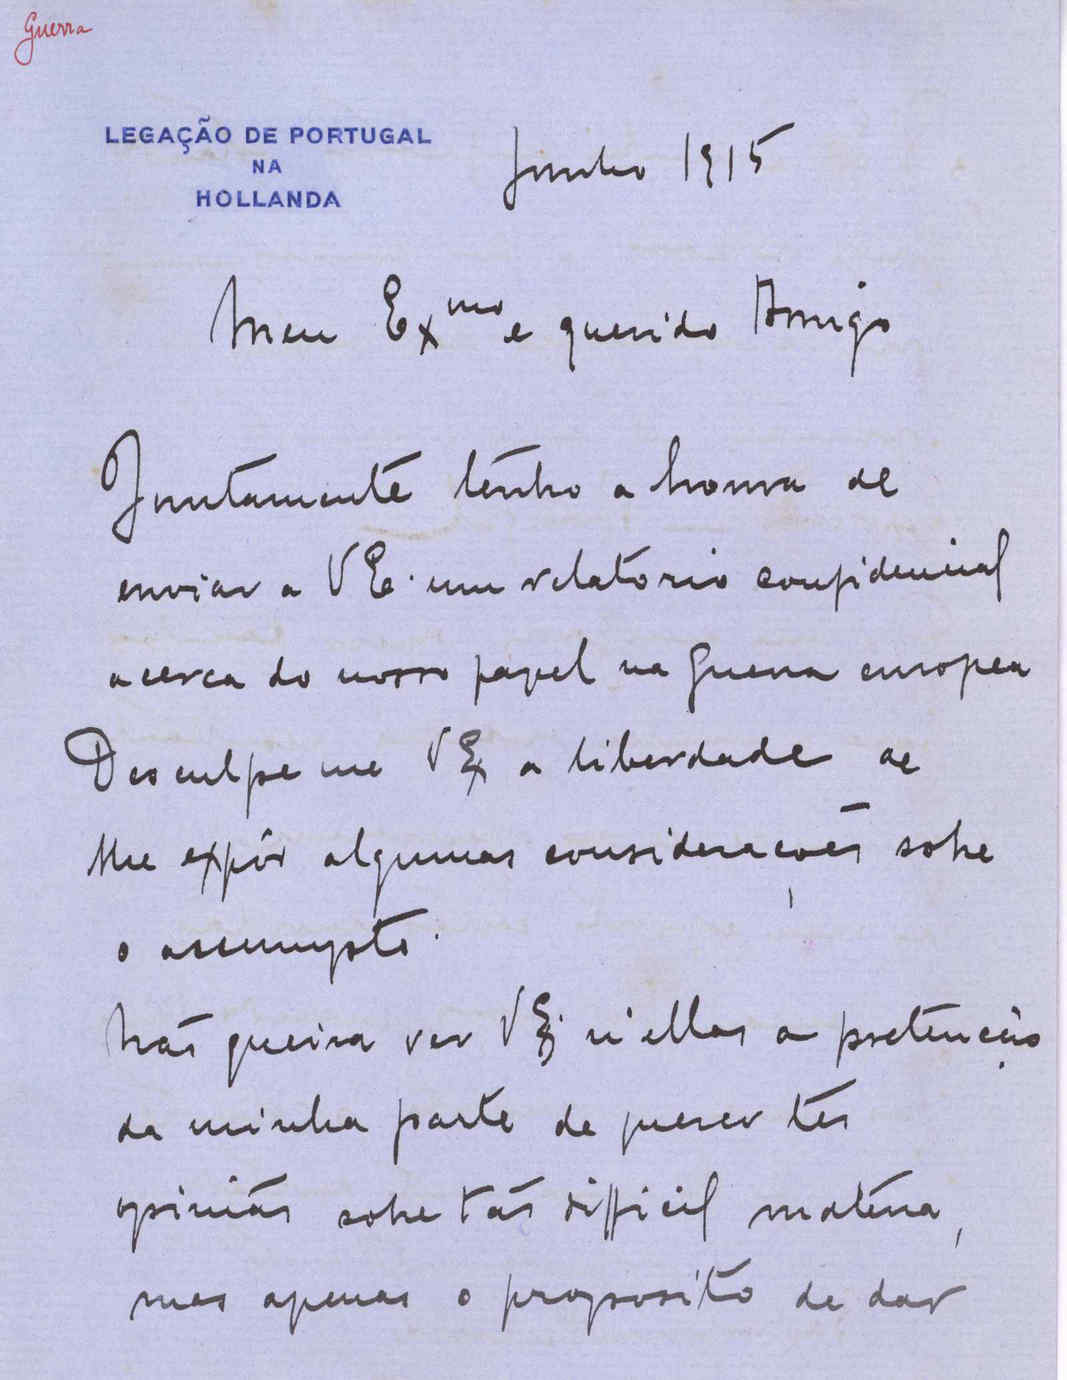 Guerra
LEGAÇÃO DE PORTUGAL
NA
HOLLANDA
Junho 1915
Meu Exmo e querido Amigo
Juntamente tenho a honra de
enviar a V E. um relatorio confidencial
acerca do nosso papel na Guerra europea
Desculpe me V Ex a liberdade de
lhe expôr algumas considerações sobre
o assumpto.
Não queira ver V Ex. n'ellas a pretenção
da minha parte de querer ter
opinião sobre tão difficil materia,
mas apenas o proposito de dar